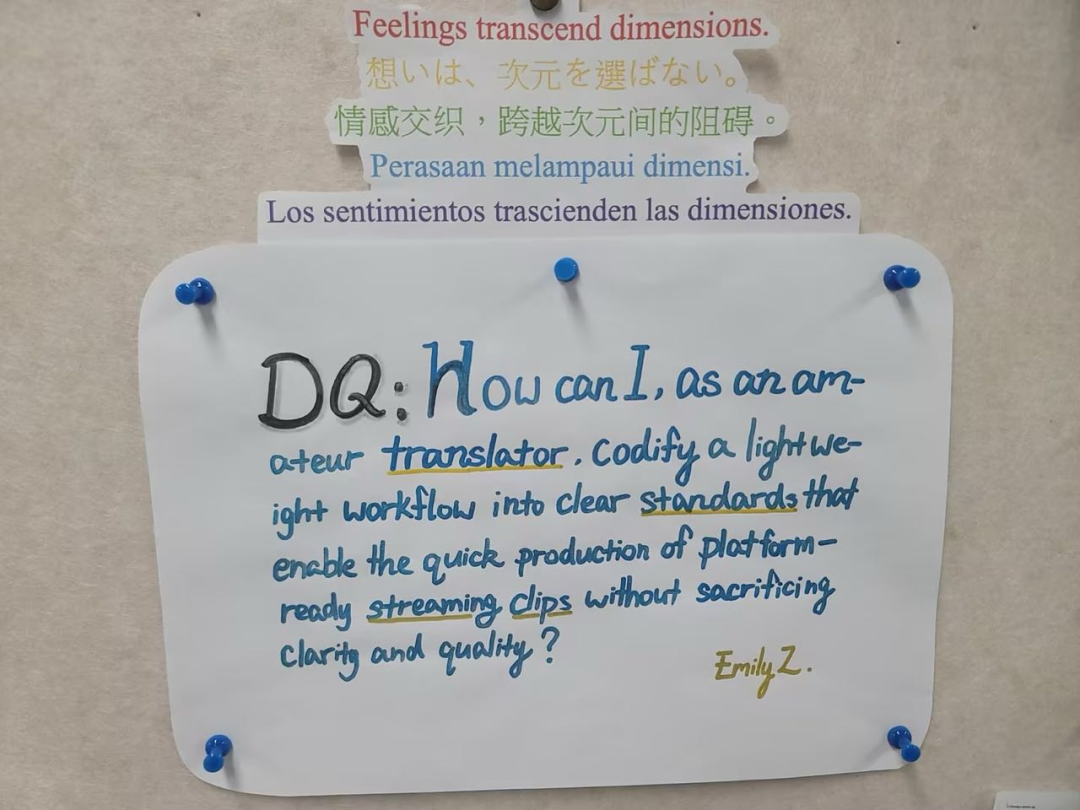 Feelings transcend dimensions.
想いは、次元を選ばない。
情感交织，跨越次元间的阻碍。
Perasaan melampaui dimensi.
Los sentimientos trascienden las dimensiones.
DQ: How can I, as an am-
ateur translator. Codify a lightwe-
ight workflow into clear standards that
enable the quick production of platform-
ready streaming clips without sacrificing
clarity and quality?
Emily Z.